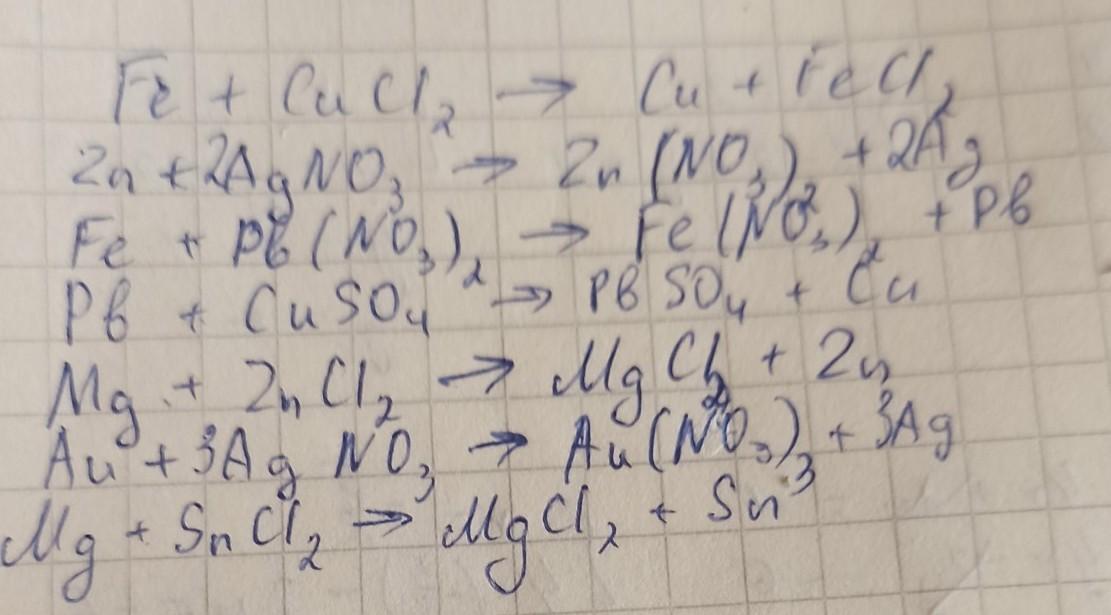 Fe + CuCl₂ → Cu + FeCl₂
Zn + 2AgNO₃ → Zn(NO₃)₂ + 2Ag
Fe + Pb(NO₃)₂ → Fe(NO₃)₂ + Pb
Pb + CuSO₄ → PbSO₄ + Cu
Mg + ZnCl₂ → MgCl₂ + Zn
Au + 3AgNO₃ → Au(NO₃)₃ + 3Ag
Mg + SnCl₂ → MgCl₂ + Sn